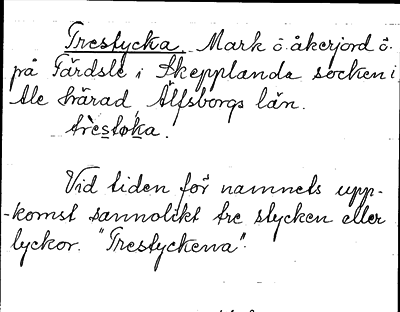 Trestycka. Mark o. åkerjord ö.
på Färdsle i Skepplanda socken i
Ale härad Älfsborgs län.
trèstøka.
Vid tiden för namnets upp-
-komst sannolikt tre stycken eller
lyckor. "Trestyckena".